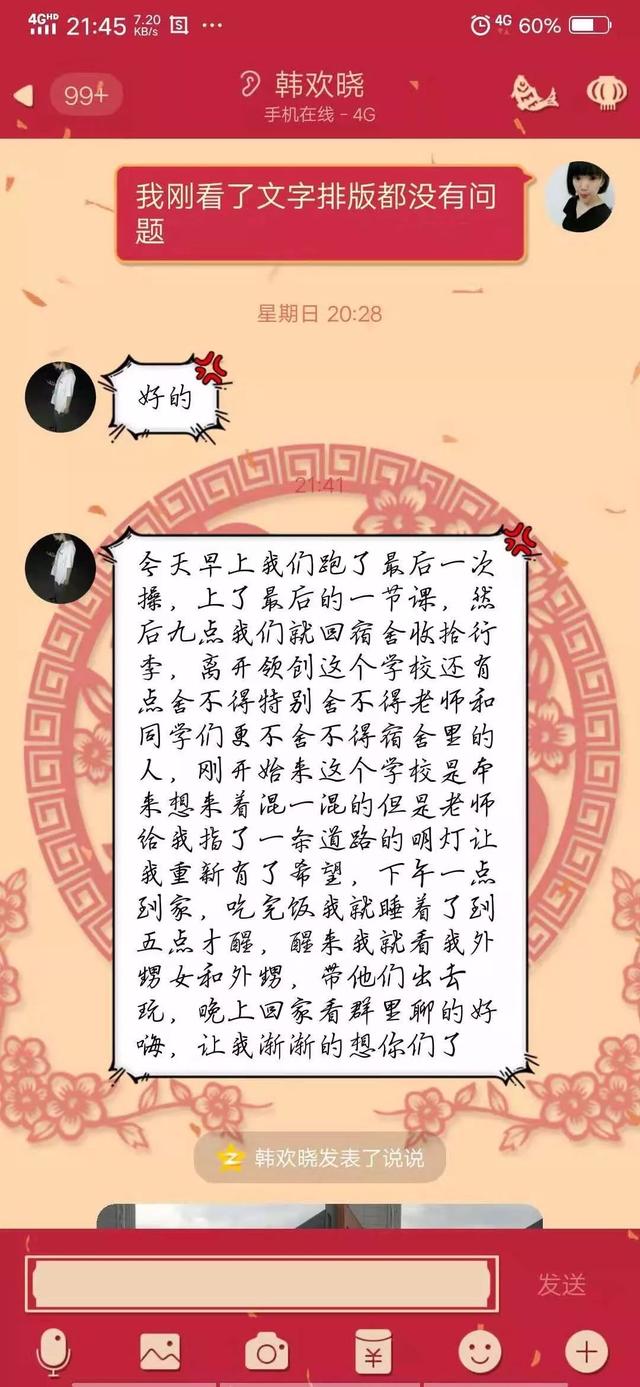 4GHD 21:45 7.20 KB/s ... 4G 60%
99+ 韩欢晓
手机在线 - 4G
我刚看了文字排版都没有问
题
星期日 20:28
好的
21:41
今天早上我们跑了最后一次
操，上了最后的一节课，然
后九点我们就回宿舍收拾行
李，离开领创这个学校还有
点舍不得特别舍不得老师和
同学们更不舍不得宿舍里的
人，刚开始来这个学校是本
来想来着混一混的但是老师
给我指了一条道路的明灯让
我重新有了希望，下午一点
到家，吃完饭我就睡着了到
五点才醒，醒来我就看我外
甥女和外甥，带他们出去
玩，晚上回家看群里聊的好
嗨，让我渐渐的想你们了
韩欢晓发表了说说
发送